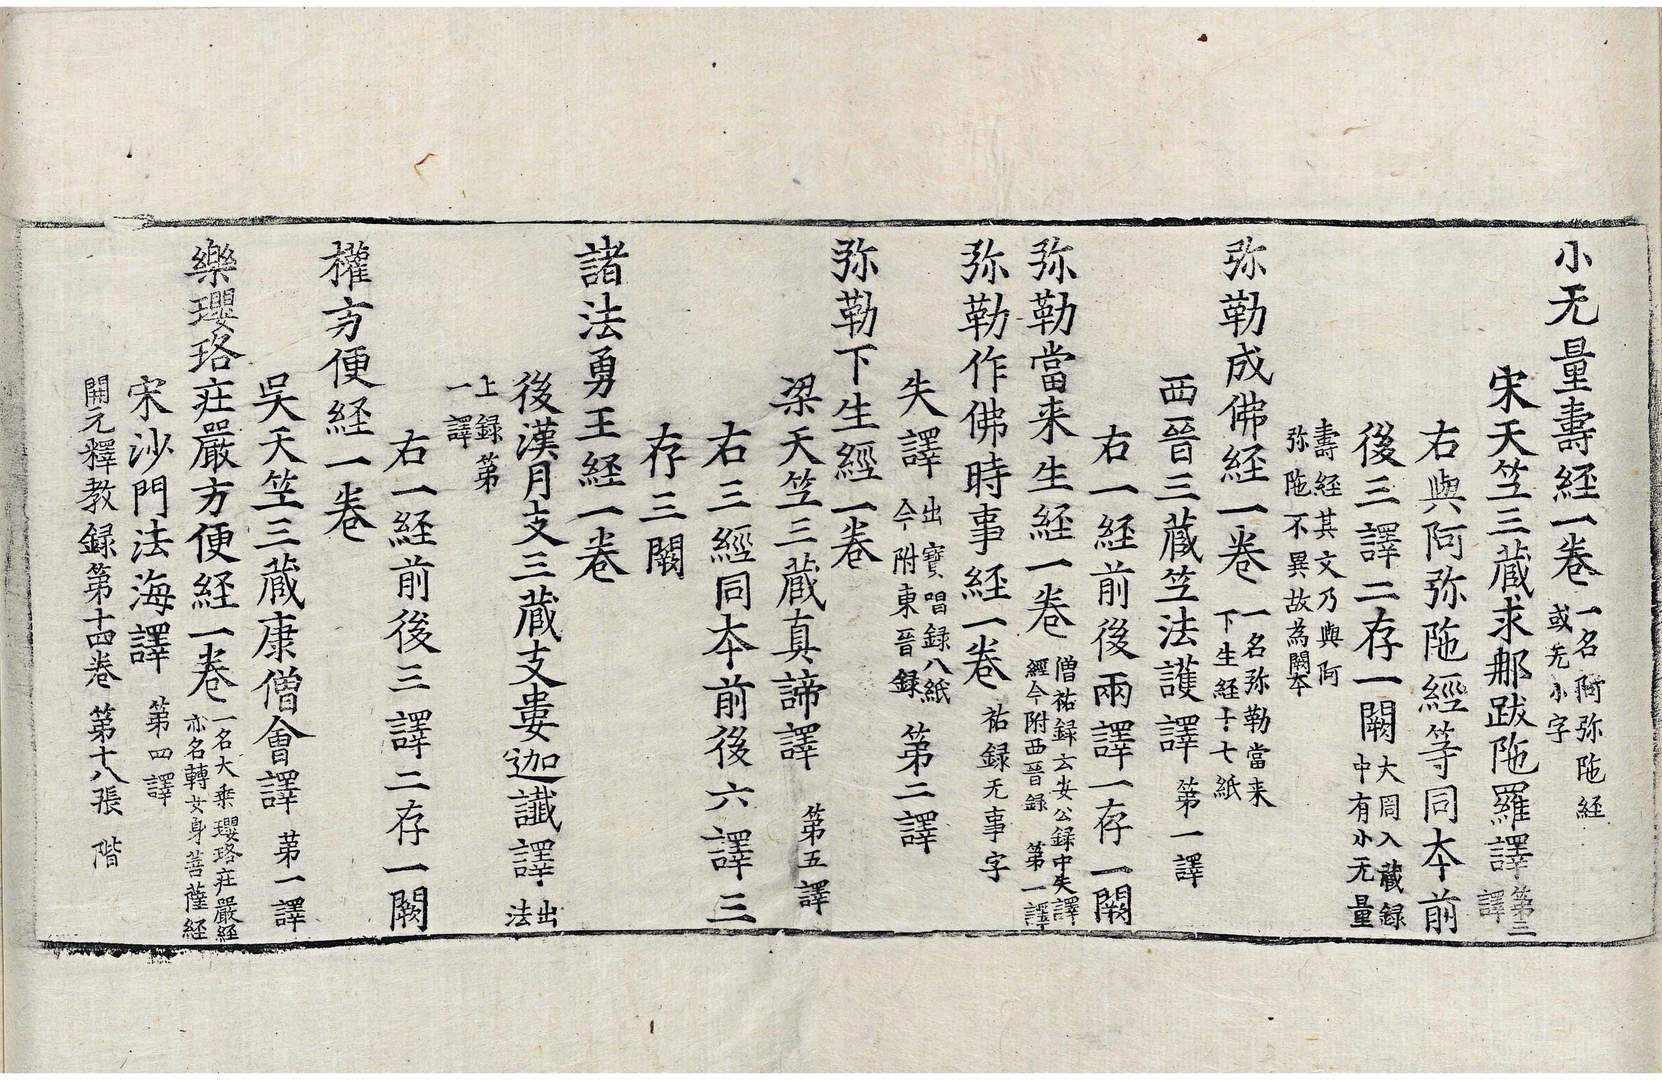 小无量壽経一卷 一名阿弥陁経 或无小字
宋天竺三藏求那跋陁羅譯 第三譯
右與阿弥陁經等同本前
後三譯二存一闕 大周入藏録 中有小无量
壽経其文乃與阿 弥陁不異故為闕本
弥勒成佛経一卷 一名弥勒當来 下生経十七紙
西晉三藏竺法護譯 第一譯
右一経前後兩譯一存一闕
弥勒當来生経一卷 僧祐録云安公録中失譯 經今附西晉録 第一譯
弥勒作佛時事経一卷 祐録无事字
失譯 出寶唱録八紙 今附東晉録 第二譯
弥勒下生經一卷
梁天竺三藏真諦譯 第五譯
右三經同本前後六譯三
存三闕
諸法勇王経一卷
後漢月支三藏支婁迦讖譯 出法
上録第一譯
右一経前後三譯二存一闕
權方便経一卷
吳天竺三藏康僧會譯 第一譯
樂瓔珞莊嚴方便経一卷 一名大乗瓔珞莊嚴経 亦名轉女身菩薩経
宋沙門法海譯 第四譯
開元釋教録第十四卷 第十八張 階